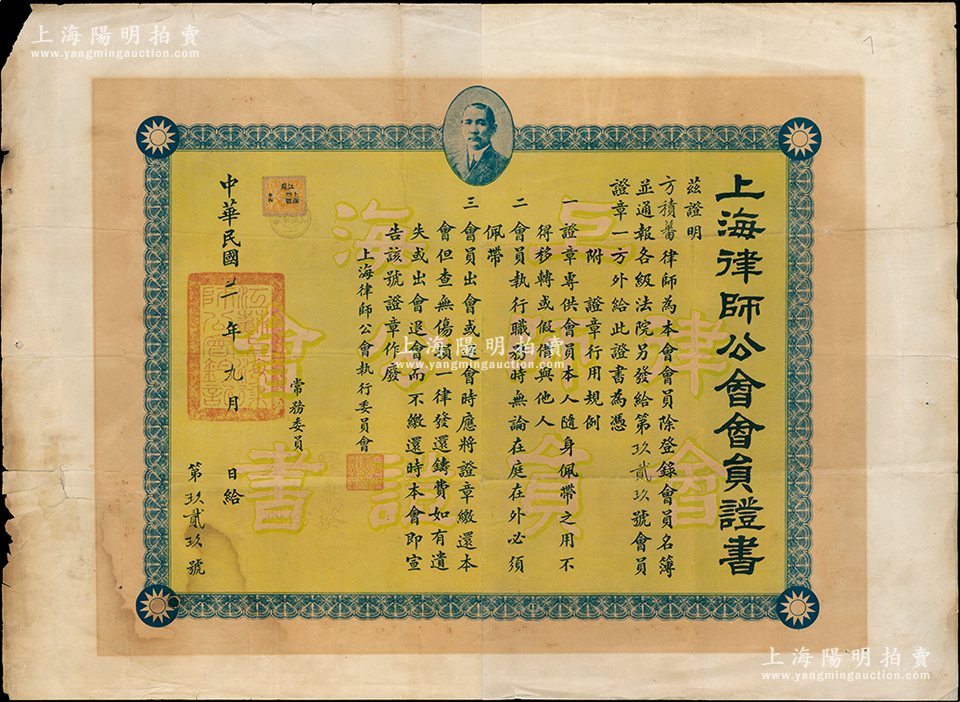 上海陽明拍賣
www.yangmingauction.com
上海律師公會會員證書
茲證明
方積蕃律師為本會會員除登錄會員名簿
並通報各級法院另發給第玖貳玖號會員
證章一方外給此證書為憑
附證章行用規例
一 證章專供會員本人隨身佩帶之用不
得移轉或假借與他人
二 會員執行職務時無論在庭在外必須
佩帶
三 會員出會或退會時應將證章繳還本
會但查無傷損一律發還鑄費如有遺
失或出會退會而不繳還時本會即宣
告該號證章作廢
上海律師公會執行委員會
常務委員
中華民國廿一年九月 日給
第玖貳玖號
上海律師公會
會員證書
上海陽明拍賣
www.yangmingauction.com
上海陽明拍賣
www.yangmingauction.com